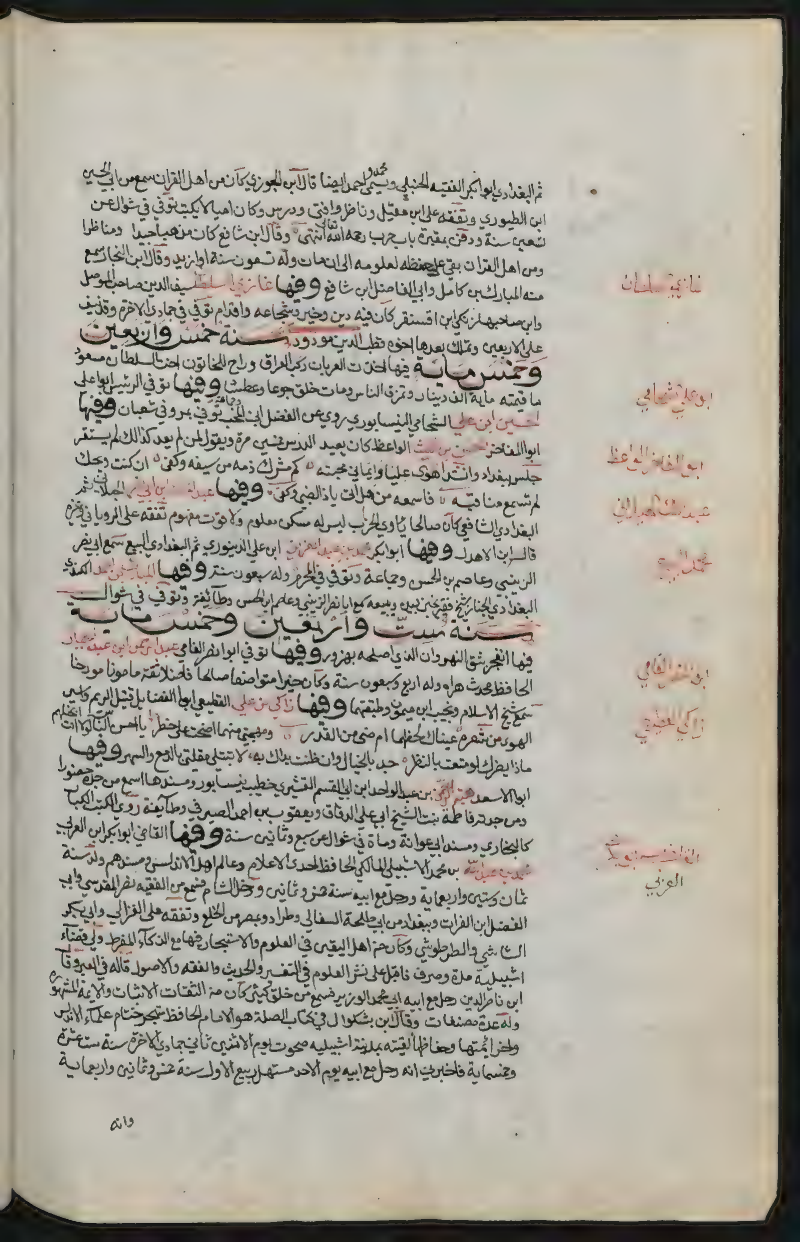 ثم البغدادي ابوا بكر الفقيه الحنبلي ويسمى محمد واحمد ايضا قال ابن الجوزي كان من اهل القران سمع من ابي الحسين
ابن الطيوري وتفقه على ابن عقيل وناظر وافتى ودرس وكان اميا لا يكتب توفي في شوال عن
تسعين سنة ودفن بمقبرة باب حرب رحمه الله تعالى انتهى وقال ابن شافع كان مذهبيا جيدا ومناظرا
ومن اهل القران بقي على حفظه لعلومه الى ان مات وله تسعون سنة او ازيد وقال ابن النجار سمع
منه المبارك بن كامل وابي الفاضل ابن شافع وفيها غازي السلطان سيف الدين صاحب الموصل
وابن صاحبها زنكي ابن اقسنقر كان فيه دين وخير وشجاعه واقدام توفي في جمادي الاخرة وقد نيف
على الاربعين وتملك بعدها اخوه قطب الدين مودود سنة خمس واربعين
وخمس ماية فيها اخذت العربان ركب العراق وراح للخاتون اخت السلطان مسعود
ما قيمته ماية الف دينار وتمزق الناس ومات خلق جوعا وعطشا وفيها توفي الرئيس ابوا على
الحسين ابن علي الشحامي النيسابوري روي عن الفضل ابن المحب توفي بمرو في شعبان وفيها
ابوا المفاخر الحسن بن الواعظ كان يعيد الدرس خمسين مرة ويقول لمن لم يعد كذلك لم يستقر
جلس ببغداد وانشد اهوى عليا وايماني محبته كم مشرك دمه من سيفه وكفى ان كنت ويحك
لم تسمع مناقبه فاسمعه من هل اتى ياذا الغبي وكفى وفيها عبد الملك ابن ابي نصر الجيلاني ثم
البغدادي الشافعي كان صالحا ياوي الخراب ليس له سكن معلوم ولا قوت مفهوم تفقه على الروياني وغيره
قاله ابن الاهدل وفيها ابوا بكر محمد بن عبد العزيز ابن علي الدينوري ثم البغدادي البيع سمع ابي نصر
الزينبي وعاصم بن الحسن وجماعة وتوفي في المحرم وله سبعون سنة وفيها المبارك بن احمد الكندي
البغدادي الخباز شيخ فقير سمع ابا نصر الزينبي وعاصم ابن الحسن وطائفة وتوفي في شوال
سنة ست واربعين وخمس ماية
فيها انفجر بثق النهروان الذي اصلحه بهروز وفيها توفي ابوا نصر الفامي عبد الرحمن ابن عبد الجبار
الحافظ محدث هراه وله اربع وسبعون سنة وكان خيرا متواضعا صالحا فاضلا ثقة مامونا مورخا
سمع شيخ الاسلام ونجيب ابن ميمون وطبقتهما وفيها زاكي بن علي القطيعي ابوا الفضايل قتيل الريم واسير
الهوى من شعره عيناك لحظهما امضى من القدر ومهجتي منهما اضحت على خطر يا احسن الناس لولا انت ابخلهم
ماذا يضرك لو متعت بالنظر جد بالخيال وان ظنت يداك به لا تبتلي مقلتي بالدمع والسهر وفيها
ابوا الاسعد هبة الرحمن بن عبد الواحد ابن ابي القسم القشيري خطيب نيسابور ومسندها سمع من جده حضورا
ومن جدته فاطمة بنت الشيخ ابو علي الدقاق ويعقوب بن احمد الصيرفي وطايفة روى الكتب الكبار
كالبخاري ومسند ابي عوانة ومات في شوال عن سبع وثمانين سنة وفيها القاضي ابوا بكر ابن العربي
محمد بن عبد الله بن محمد الاشبيلي المالكي الحافظ احدى الاعلام وعالم اهل الاندلس ومسندهم ولد سنة
ثمان وستين واربعماية ورحل مع ابيه سنة خمس وثمانين ودخل الشام فسمع من الفقيه نصر المقدسي وابي
الفضل ابن الفرات وببغداد من ابي طلحة النعالي وطراد وبمصر من الخلع وتفقه على الغزالي وابي بكر
الشاشي والطرطوشي وكان من اهل اليقين في العلوم والاستبحار فيها مع الذكاء المفرط ولي قضاء
اشبيلية مدة وصرف فاقبل على نشر العلوم في التفسير والحديث والفقه والاصول قاله في العبر وقال
ابن ناصر الدين رحل مع ابيه ابي محمد الوزير فسمع من خلق كثير كان من الثقات الاثبات والايمة المشهورين
وله عدة مصنفات وقال ابن بشكوال في كتاب الصلة هو الامام الحافظ المتبحر ختام علماء الاندلس
واخر ائمتها وحفاظها لقيته بمدينة اشبيليه صحوت يوم الاثنين ثاني جمادي الاخرة سنة ست عشرة
وخمسماية فاخبرني انه رحل مع ابيه يوم الاحد مستهل ربيع الاول سنة خمس وثمانين واربعماية
وانه
ابو علي الشحامي
ابو المفاخر الواعظ
عبد الملك الجيلاني
محمد البيع
ابو نصر الفامي
زاكي القطيعي
القاضي ابو بكر
العربي